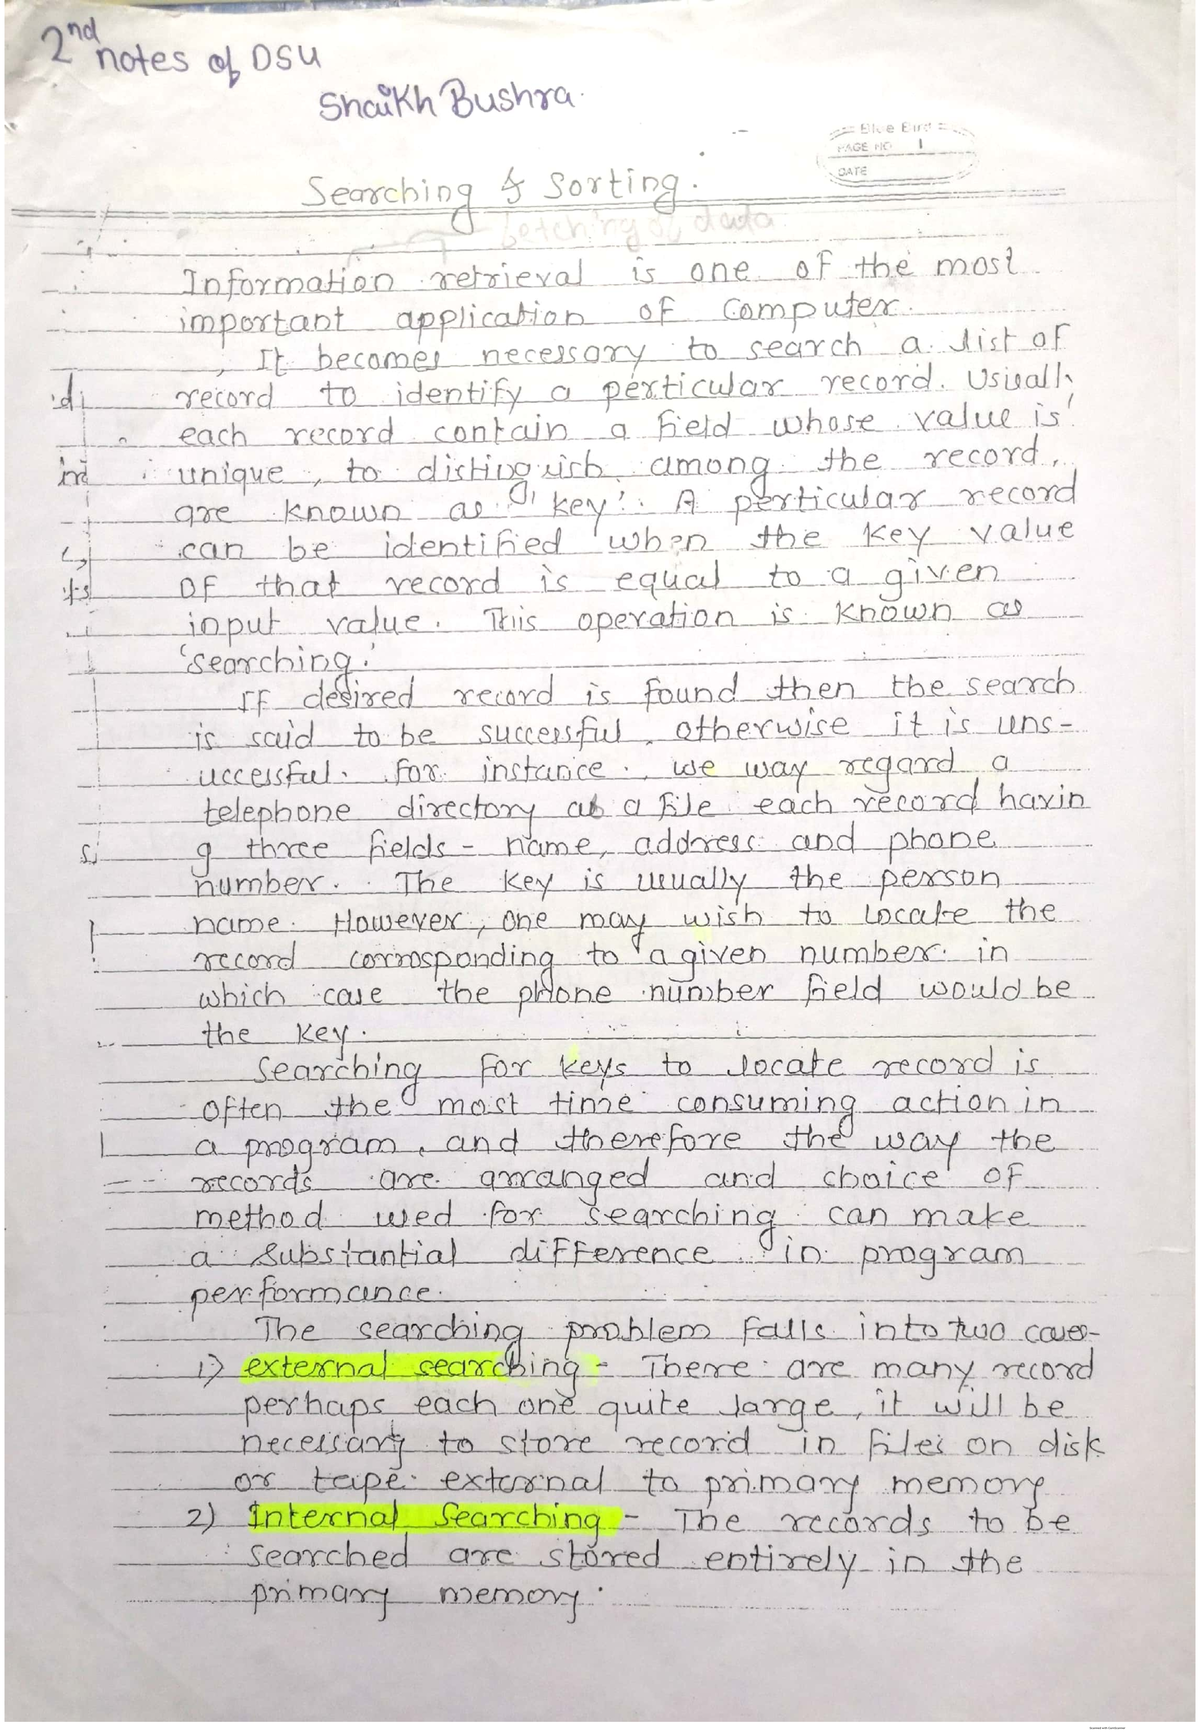 2nd notes of DSU
Shaikh Bushra.
Blue Bird
PAGE NO 1
DATE
Searching & Sorting.
fetching of data
Information retrieval is one of the most
important application of Computer.
It becomes necessary to search a list of
record to identify a perticular record. Usuall
each record contain a field whose value is
unique, to distinguish among the record,
are known as 'key'. A perticular record
can be identified when the key value
of that record is equal to a given
input value. This operation is known as
'searching.'
If desired record is found then the search
is said to be successful, otherwise it is uns-
uccessful. For instance, we way regard a
telephone directory as a file each record havin
g three fields - name, address and phone
number. The key is usually the person
name. However, one may wish to locate the
record corrosponding to a given number in
which case the phone number field would be
the key.
Searching for keys to locate record is
often the most time consuming action in
a program, and therefore the way the
records are arranged and choice of
method used for searching can make
a substantial difference in program
performance.
The searching problem falls into two cases-
1) external searching - There are many record
perhaps each one quite large, it will be
necessary to store record in files on disk
or tape external to primary memory
2) Internal Searching - The records to be
searched are stored entirely in the
primary memory.